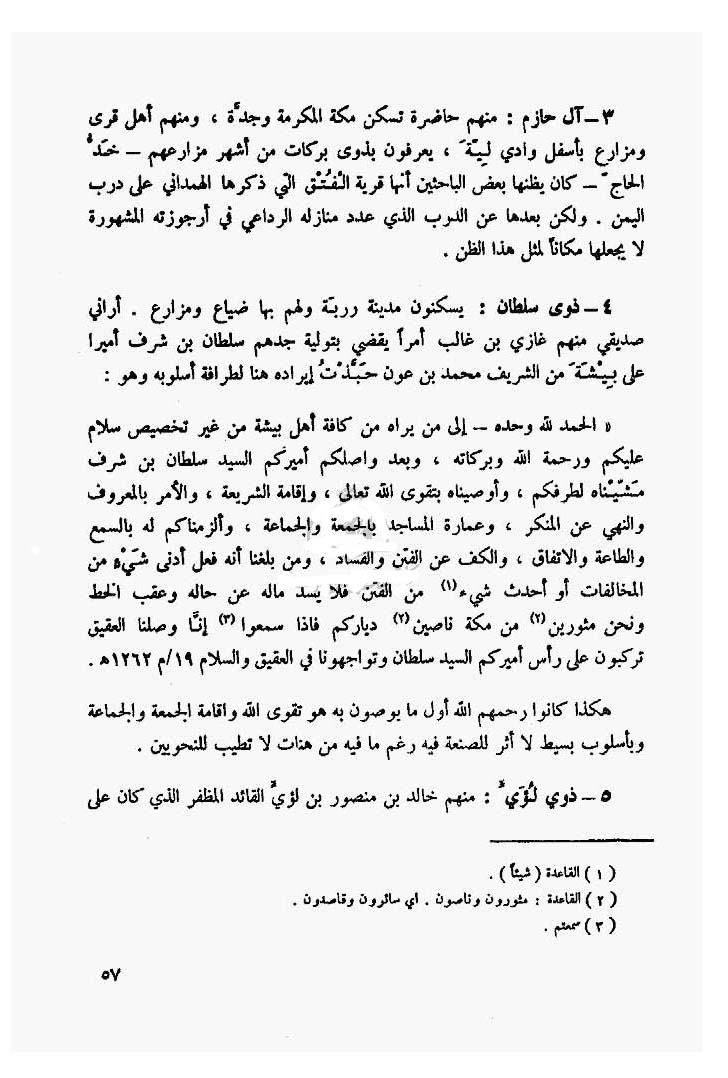 ٣ــ آل حازم : منهم حاضرة تسكن مكة المكرمة وجدَّة ، ومنهم أهل قرى
ومزارع بأسفل وادي لِيَّة ، يعرفون بذوى بركات من أشهر مزارعهم ــ خَدُّ
الحاج ــ كان يظنها بعض الباحثين أنها قرية الْفُتُق التي ذكرها الهمداني على درب
اليمن . ولكن بعدها عن الدرب الذي عدد منازله الرداعي في أرجوزته المشهورة
لا يجعلها مكاناً لمثل هذا الظن .
٤ــ ذوى سلطان : يسكنون مدينة وربة ولهم بها ضياع ومزارع . أراني
صديقي منهم غازي بن غالب أمراً يقضي بتولية جدهم سلطان بن شرف أميرا
على بِيْشَةَ من الشريف محمد بن عون حَبَّذْتُ إيراده هنا لطرافة أسلوبه وهو :
« الحمد لله وحده ــ إلى من يراه من كافة أهل بيشة من غير تخصيص سلام
عليكم ورحمة الله وبركاته ، وبعد واصلكم أميركم السيد سلطان بن شرف
مَشَّيْنَاه لطرفكم ، وأوصيناه بتقوى الله تعالى ، وإقامة الشريعة ، والأمر بالمعروف
والنهي عن المنكر ، وعمارة المساجد بالجمعة والجماعة ، وألزمناكم له بالسمع
والطاعة والاتفاق ، والكف عن الفتن والفساد ، ومن بلغنا أنه فعل أدنى شَيْءٍ من
المخالفات أو أحدث شيء (١) من الفتن فلا يسد ماله عن حاله وعقب الخط
ونحن مثورين (٢) من مكة ناصين (٢) دياركم فاذا سمعوا (٣) إنَّا وصلنا العقيق
تركبون على رأس أميركم السيد سلطان وتواجهونا في العقيق والسلام ١٩/م ١٢٦٢ه .
هكذا كانوا رحمهم الله أول ما يوصون به هو تقوى الله واقامة الجمعة والجماعة
وبأسلوب بسيط لا أثر للصنعة فيه رغم ما فيه من هنات لا تطيب للنحويين .
٥ــ ذوي لُؤَيّ : منهم خالد بن منصور بن لؤيّ القائد المظفر الذي كان على
( ١ ) القاعدة ( شيئاً ) .
( ٢ ) القاعدة : مثورون وناصون . اي سائرون وقاصدون .
( ٣ ) سمعتم .
٥٧